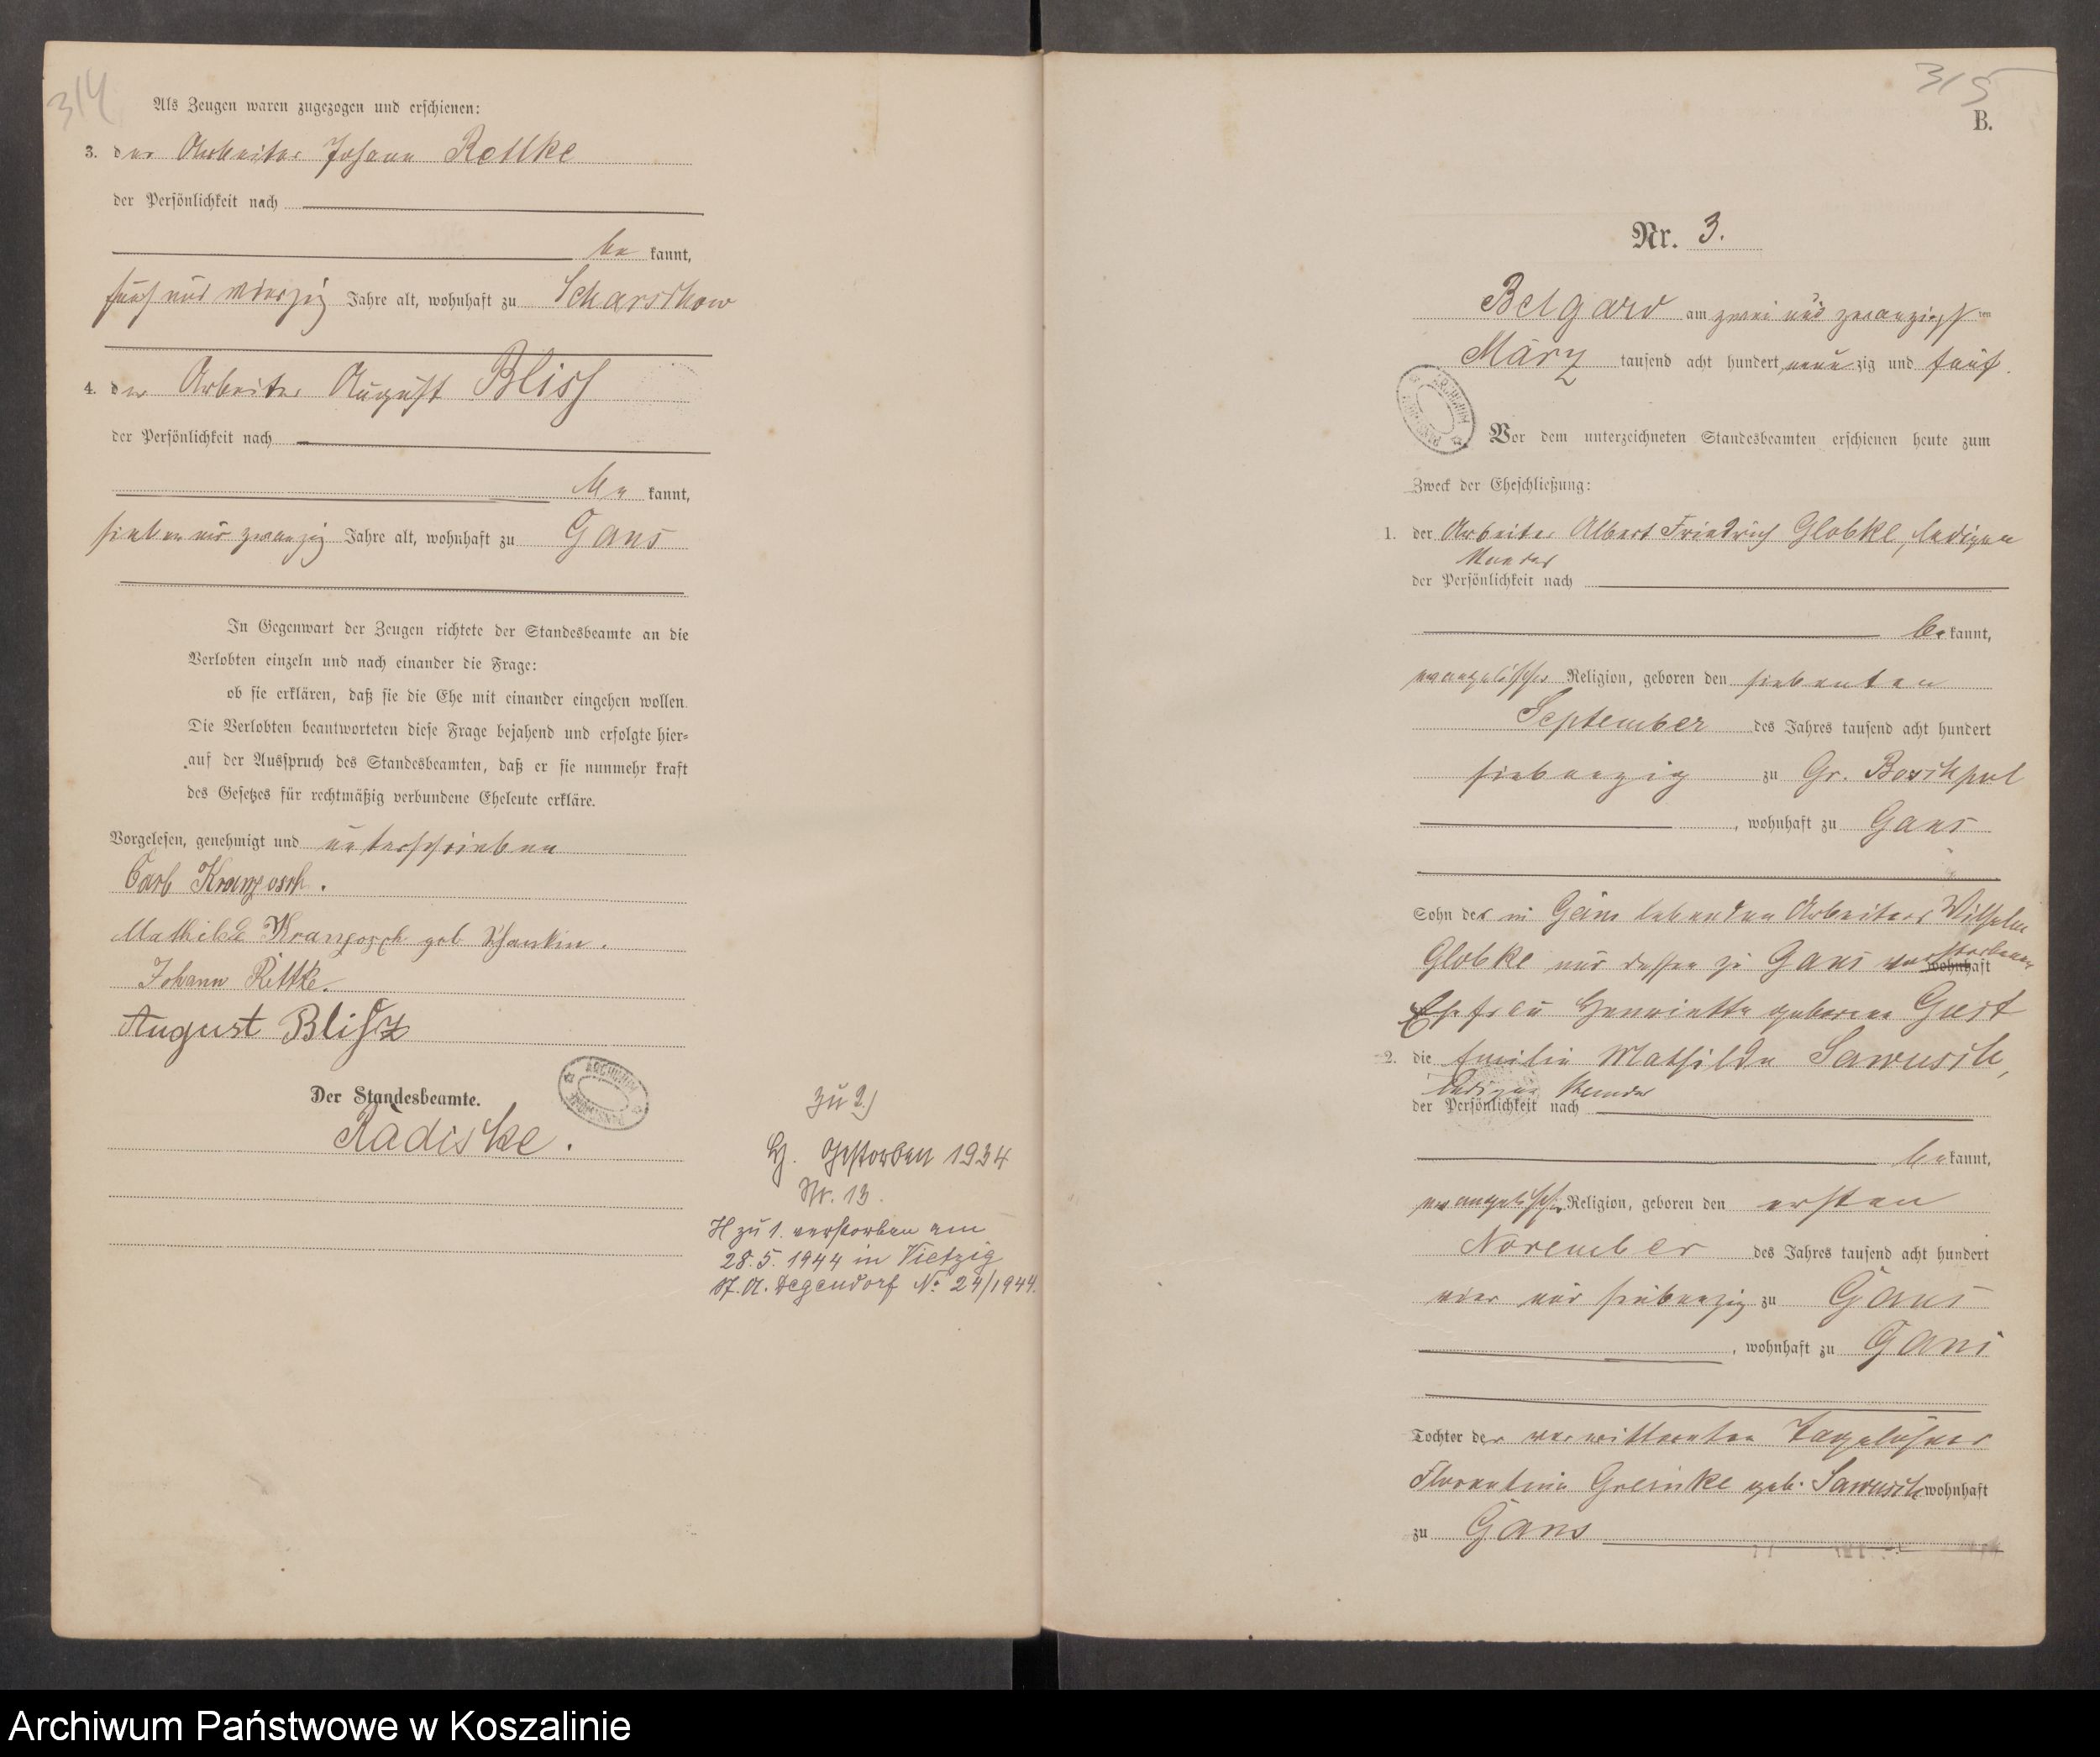 314
Als Zeugen waren zugezogen und erschienen:
3. der Arbeiter Johann Rettke
der Persönlichkeit nach
be kannt,
fünf und vierzig Jahre alt, wohnhaft zu Scharschow
4. der Arbeiter August Bliss
der Persönlichkeit nach
be kannt,
sieben und zwanzig Jahre alt, wohnhaft zu Gans
In Gegenwart der Zeugen richtete der Standesbeamte an die
Verlobten einzeln und nach einander die Frage:
ob sie erklären, daß sie die Ehe mit einander eingehen wollen.
Die Verlobten beantworteten diese Frage bejahend und erfolgte hier-
auf der Ausspruch des Standesbeamten, daß er sie nunmehr kraft
des Gesetzes für rechtmäßig verbundene Eheleute erkläre.
Vorgelesen, genehmigt und unterschrieben
Carl
Mathilde geb.
Johann Rettke.
August Blisz
Der Standesbeamte.
Radiske.
zu 2)
H. gestorben 1934
Nr. 13.
H zu 1. verstorben am
28.5.1944 in Vietzig
St. A. Degendorf No 24/1944.
315
B.
Nr. 3.
Belgard am zwei und zwanzigsten
März tausend acht hundert neunzig und fünf.
Vor dem unterzeichneten Standesbeamten erschienen heute zum
Zweck der Eheschließung:
1. der Arbeiter Albert Friedrich Globke, ledigen
Standes
der Persönlichkeit nach
be kannt,
evangelischer Religion, geboren den siebenten
September des Jahres tausend acht hundert
siebenzig zu Gr. Boschpol
, wohnhaft zu Gans
Sohn des in Gans lebenden Arbeiters Wilhelm
Globke und dessen zu Gans verstorbenen
wohnhaft
Ehefrau Henriette geborene Gust
2. die Emilie Mathilde Sawusch,
ledigen Standes
der Persönlichkeit nach
be kannt,
evangelischer Religion, geboren den ersten
November des Jahres tausend acht hundert
vier und siebenzig zu Gans
, wohnhaft zu Gans
Tochter der verwittweten Tagelöhner
Florentine Greinke geb. Sawusch wohnhaft
zu Gans
Archiwum Państwowe w Koszalinie